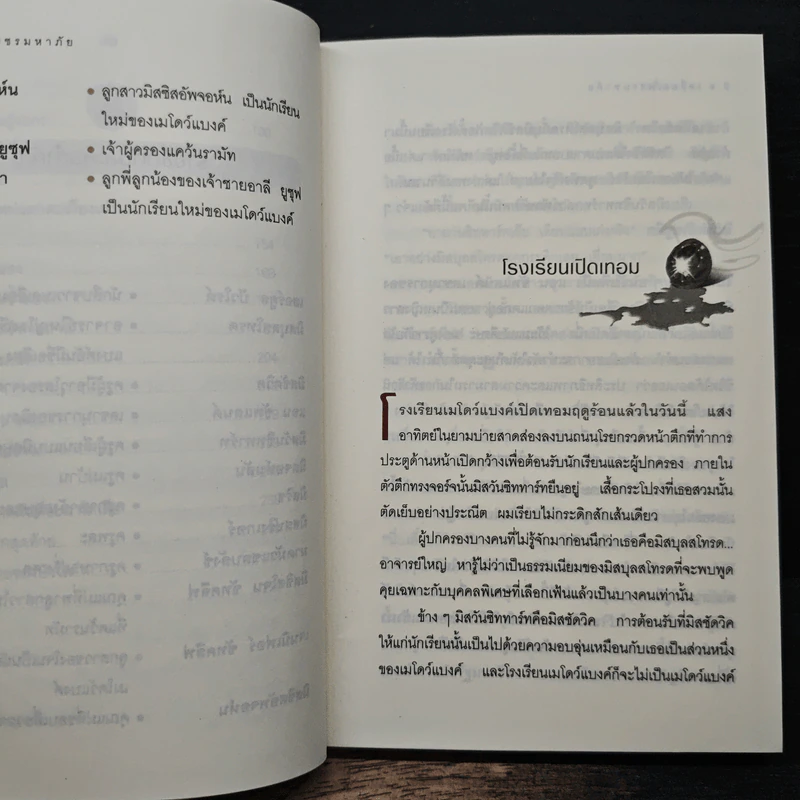 ชรมหาภัย
ห์น
ลูกสาวมิสซิสอัพจอห์น เป็นนักเรียน
ใหม่ของเมโดว์แบงค์
ยูซุฟ
เจ้าผู้ครองแคว้นรามัท
า
ลูกพี่ลูกน้องของเจ้าชายอาลี ยูซุฟ
เป็นนักเรียนใหม่ของเมโดว์แบงค์
โรงเรียนเปิดเทอม
โรงเรียนเมโดว์แบงค์เปิดเทอมฤดูร้อนแล้วในวันนี้ แสง
อาทิตย์ในยามบ่ายสาดส่องลงบนถนนโรยกรวดหน้าตึกที่ทำการ
ประตูด้านหน้าเปิดกว้างเพื่อต้อนรับนักเรียนและผู้ปกครอง ภายใน
ตัวตึกทรงจอร์จนั้นมิสวันซิททาร์ทยืนอยู่ เสื้อกระโปรงที่เธอสวมนั้น
ตัดเย็บอย่างประณีต ผมเรียบไม่กระดิกสักเส้นเดียว
ผู้ปกครองบางคนที่ไม่รู้จักมาก่อนนึกว่าเธอคือมิสบุลสโทรด...
อาจารย์ใหญ่ หารู้ไม่ว่าเป็นธรรมเนียมของมิสบุลสโทรดที่จะพบพูด
คุยเฉพาะกับบุคคลพิเศษที่เลือกเฟ้นแล้วเป็นบางคนเท่านั้น
ข้าง ๆ มิสวันซิททาร์ทคือมิสชัดวิค การต้อนรับที่มิสชัดวิค
ให้แก่นักเรียนนั้นเป็นไปด้วยความอบอุ่นเหมือนกับเธอเป็นส่วนหนึ่ง
ของเมโดว์แบงค์ และโรงเรียนเมโดว์แบงค์ก็จะไม่เป็นเมโดว์แบงค์